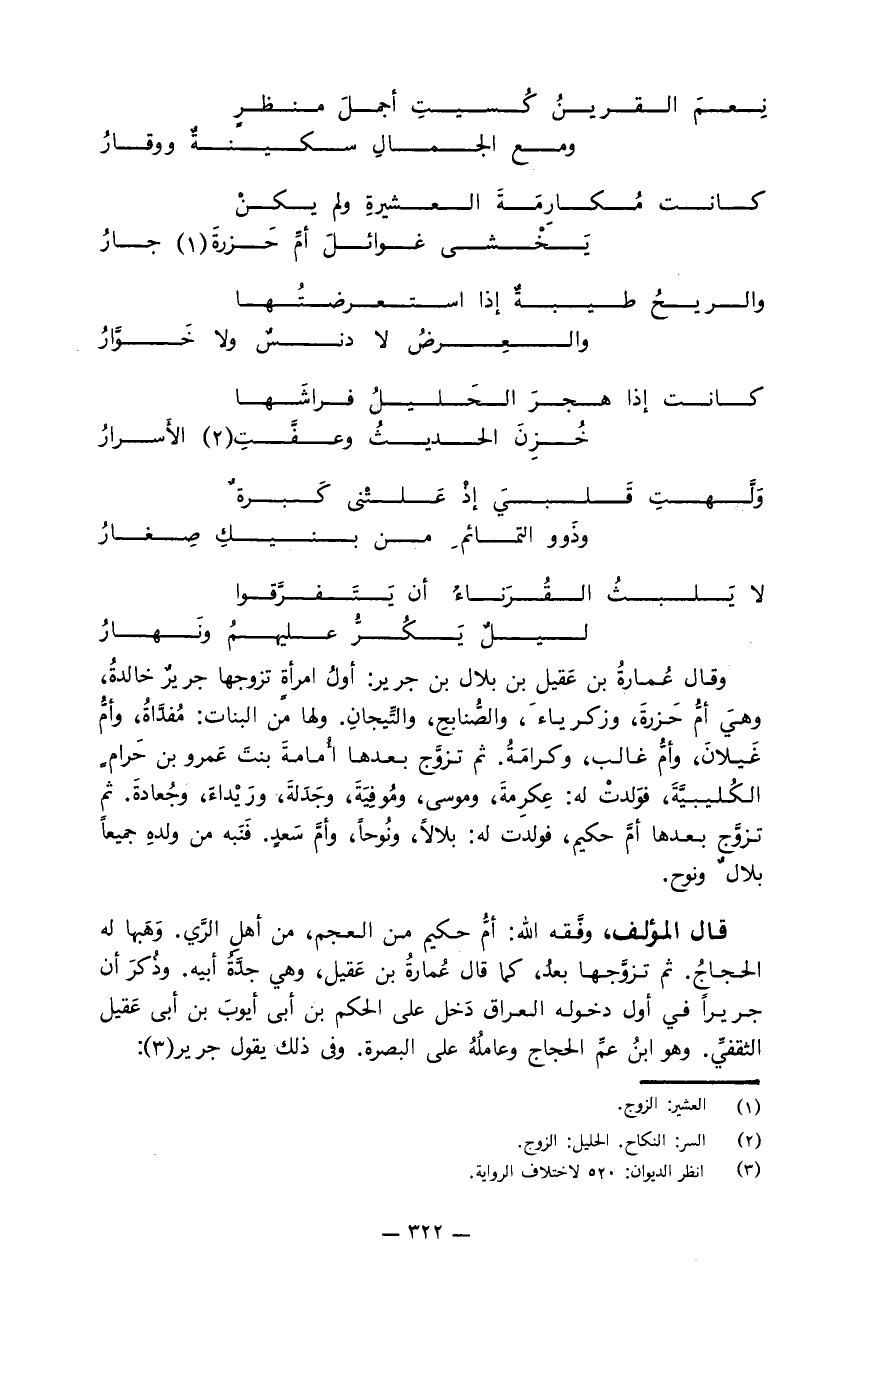 نِعمَ القرينُ كُسيتِ أجملَ منظرٍ
ومع الجمالِ سكينةٌ ووقارُ
كانت مُكارِمَةَ العشيرةِ ولم يكنْ
يَخْشى غوائلَ أمِّ حَزرةَ(١) جارُ
والريحُ طيبةٌ إذا استعرضتُها
والعِرضُ لا دنسٌ ولا خَوَّارُ
كانت إذا هجرَ الحَليلُ فراشَها
خُزِنَ الحديثُ وعفَّتِ(٢) الأَسرارُ
وَلَّهتِ قَلبيَ إذْ عَلتْني كَبرةٌ
وذَوو التمائمِ من بنيكِ صِغارُ
لا يَلبثُ القُرَناءُ أن يَتَفرَّقوا
ليلٌ يَكُرُّ عليهمُ ونَهارُ
وقال عُمارةُ بن عَقيل بن بلال بن جرير: أولُ امرأةٍ تزوجها جريرٌ خالدةُ،
وهيَ أمُّ حَزرةَ، وزكرياءَ، والصُّنابح، والتِّيجانِ. ولها من البنات: مُفدَّاةُ، وأمُّ
غَيلانَ، وأمُّ غالب، وكرامَةُ. ثم تزوَّج بعدها أُمامةَ بنتَ عَمرو بن حَرامٍ
الكُليبيَّةَ، فوَلدتْ له: عِكرِمةَ، وموسى، ومُوفِيَةَ، وجَدَلةَ، ورَيْداءَ، وجُعادةَ. ثم
تزوَّج بعدها أمَّ حكيم، فولدت له: بلالاً، ونُوحاً، وأمَّ سَعدٍ. فنَبه من ولدهِ جميعاً
بلالٌ ونوح.
قال المؤلف، وفَّقه الله: أمُّ حكيم من العجم، من أهلِ الرَّي. وَهَبها له
الحجاجُ. ثم تزوَّجها بعدُ، كما قال عُمارةُ بن عَقيل، وهي جدَّةُ أبيه. وذُكرَ أن
جريراً في أول دخوله العراق دَخل على الحكم بن أبى أيوبَ بن أبى عَقيل
الثقفيِّ. وهو ابنُ عمِّ الحجاج وعاملُهُ على البصرة. وفى ذلك يقول جرير(٣):
(١) العشير: الزوج.
(٢) السر: النكاح. الحليل: الزوج.
(٣) انظر الديوان: ٥٢٠ لاختلاف الرواية.
— ٣٢٢ —